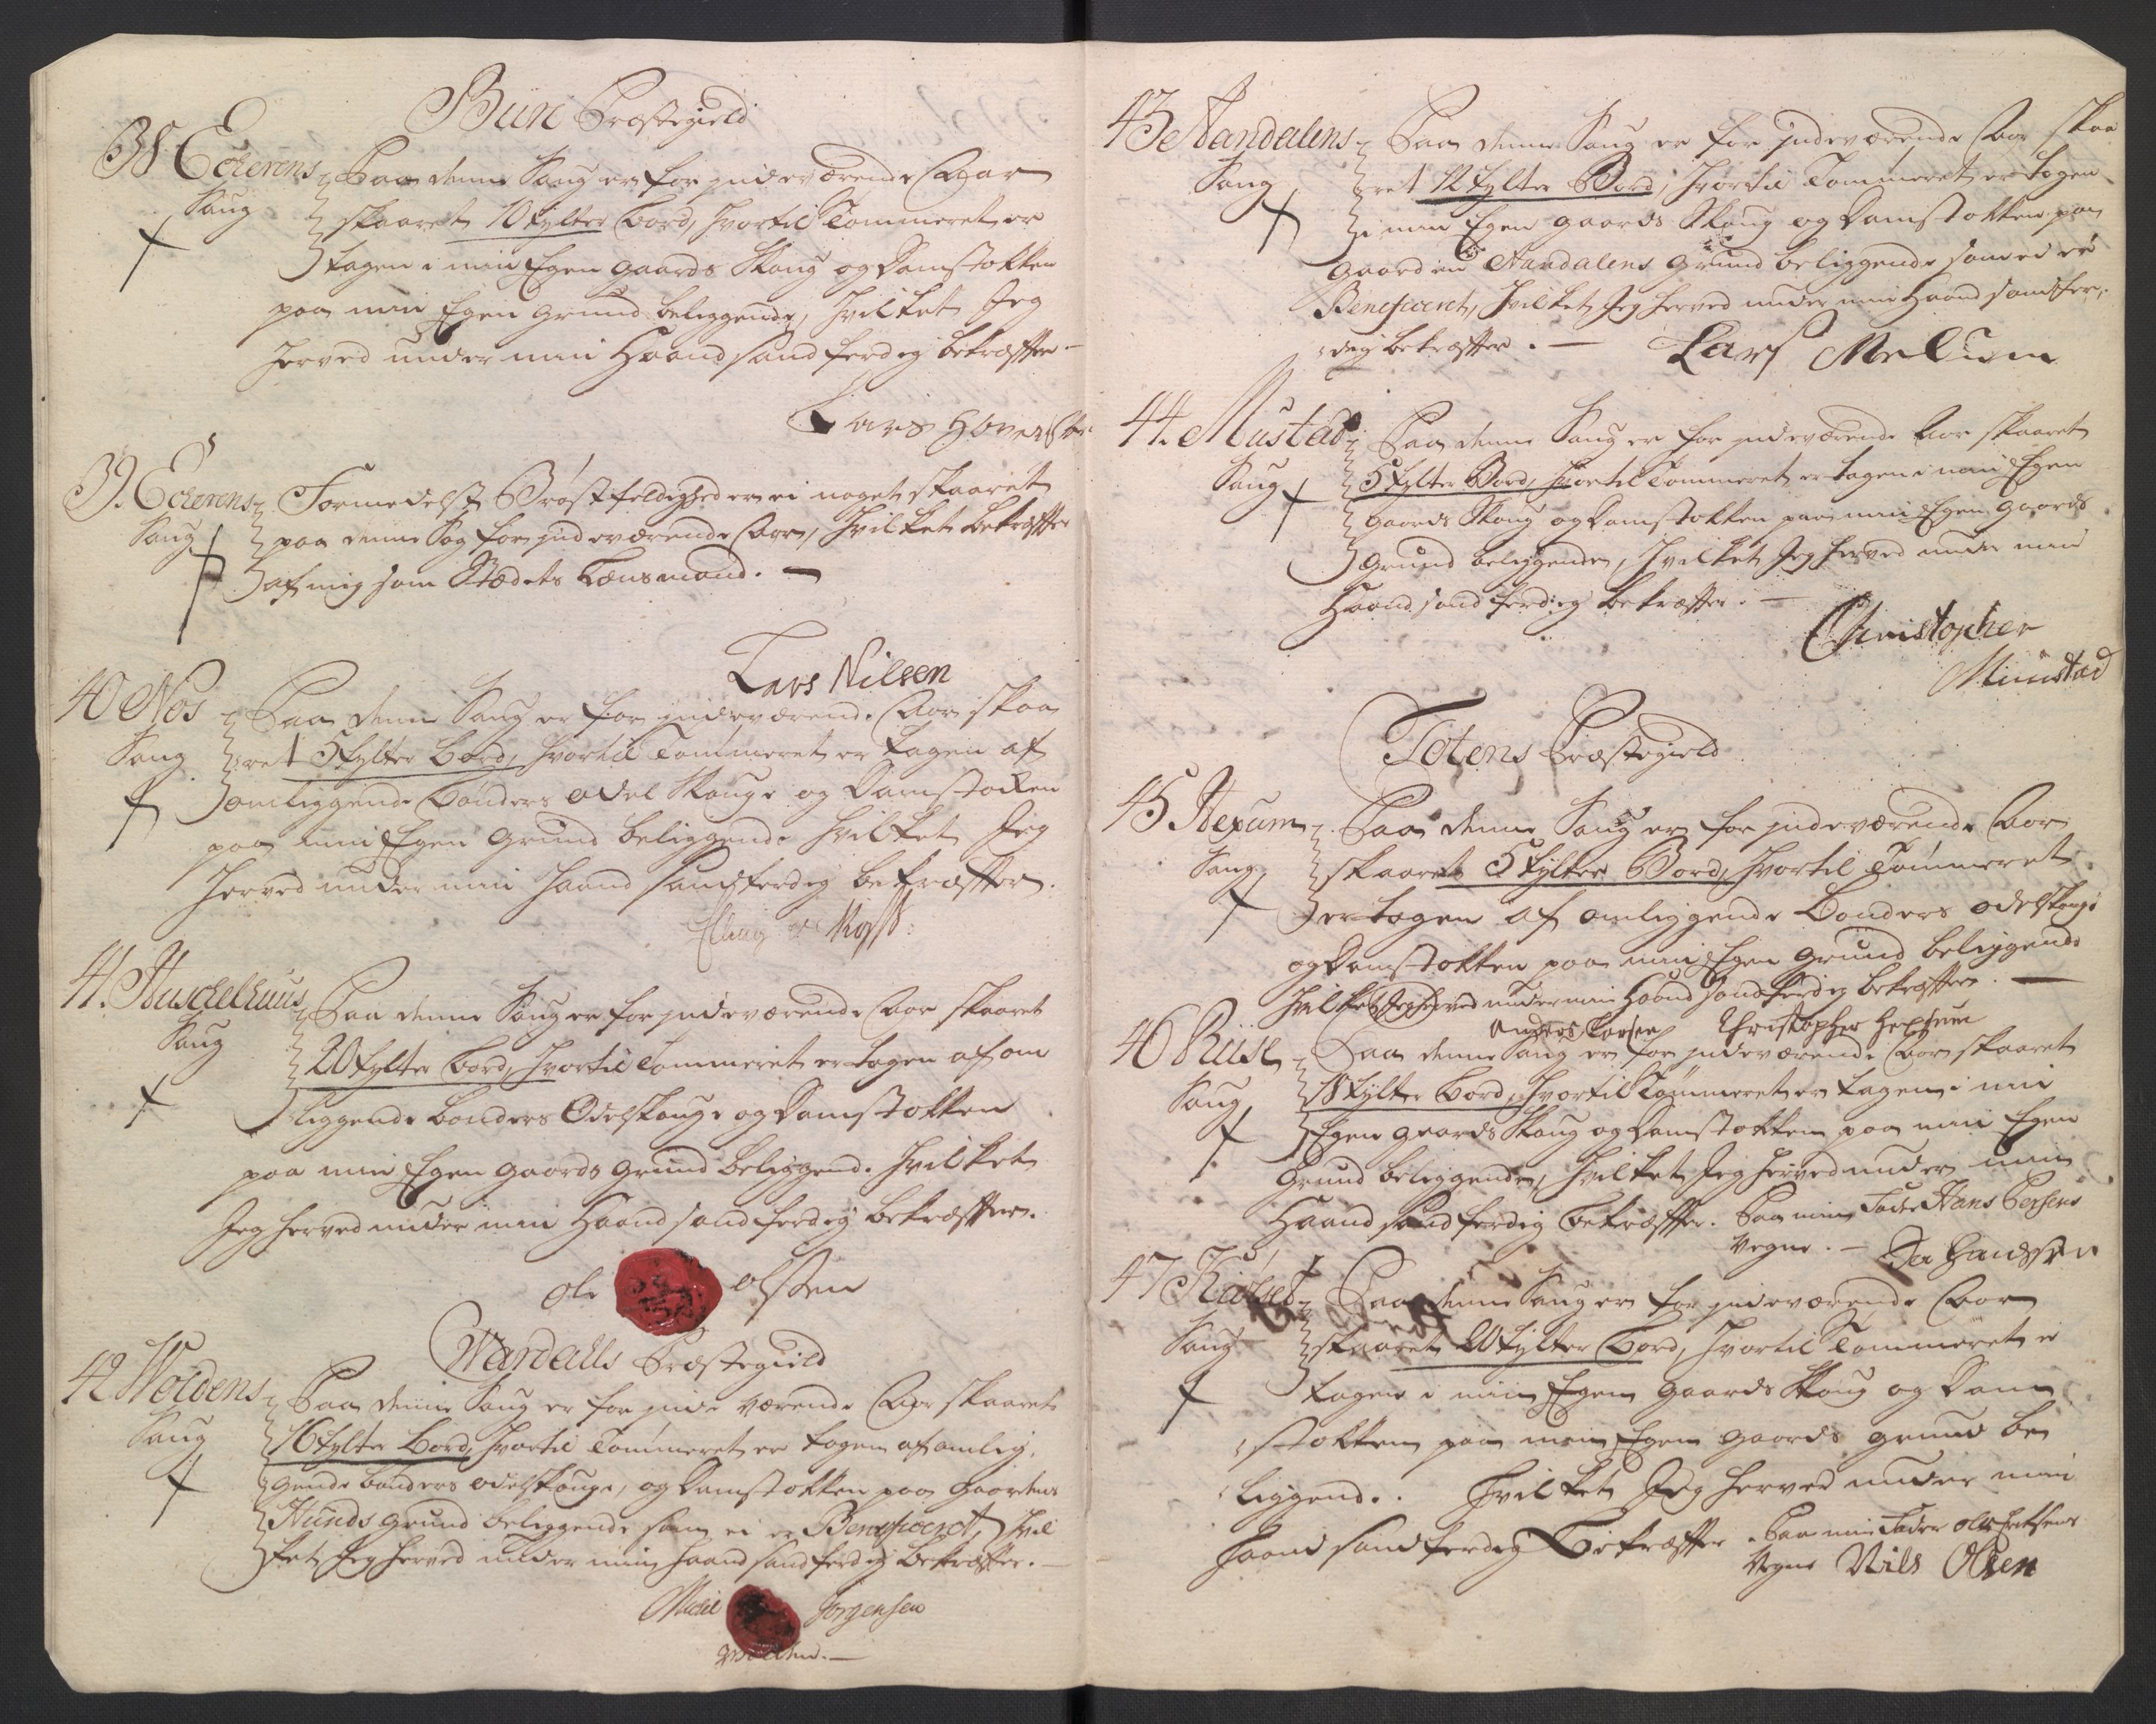 Biire Præstegield
38 Eckerens Saug
Paa denne Saug er for indeværende Aar
skaaret 10 tylter Bord, hvortil Tømmeret er
tagen i min Egen gaards Skoug og Damstokken
paa min Egen grund beliggende, hvilket Jeg
herved under min Haand sandferdig bekræfter
Lars
39. Eckerens Saug
Formedelst Brøstfeldighed er ei noget skaaret
paa denne Sag for indeværende Aar, hvilket bekræfter
af mig som Stædets Lensmand.
Lars Nilsen
40 Nøs Saug
Paa denne Saug er for indeværende Aar skaa
ret 5 tylter Bord, hvortil Tømmeret er tagen af
omliggende Bønders odel Skouge og Damstocken
paa min Egen grund beliggende hvilket Jeg
herved under min Haand sandferdig bekræfter.
41. Huschelhuus Saug
Paa denne Saug er for indeværende Aar skaaret
20 tylter Bord, hvortil Tømmeret er tagen af om
liggende bønders Odelskouge og Damstokken
paa min Egen gaards grund beliggende. hvilket
Jeg herved under min Haand sandferdig bekræfter.
Ole Olssen
Wardahls Præstegield
42 Woldens Saug
Paa denne Saug er for inde værende Aar skaaret
16 tylter Bord, hvortil Tømmeret er tagen af omlig,
gende bønders odelskouge, og Damstokken paa gaardens
Hunds grund beliggende som ei er Beneficeret, hvil
ket Jeg herved under min haand sandferdig bekræfter.
Jørgensen
43 Aandalens Saug
Paa denne Saug er for indeværende Aar skaa
ret 12 tylter Bord, hvortil Tømmeret er tagen
i min Egen gaards Skoug og Damstokken paa
gaarden Aandalens grund beliggende som ei er
Beneficeret, hvilket Jeg herved under min Haand sandfer,
dig bekræfter.
Lars Melum
44. Mustad Saug
Paa denne Saug er for indeværende Aar skaaret
5 tylter Bord, hvortil Tømmeret er tagen i min Egen
gaards Skoug og Damstokken paa min Egen gaards
grund beliggende, hvilket Jeg herved under min
Haand sandferdig bekræfter.
Christopher
Muustad
Totens Præstegield
45 Hexum Saug
Paa denne Saug er for indeværende Aar
skaaret 5 tylter Bord, hvortil Tømmeret
er tagen af omliggende Bønders odelskouge
og Damstokken paa min Egen grund beliggende
hvilket Jeg herved under min Haand sandferdig bekræfter.
Anders Larsen Christopher Hexum
46 Riise Saug
Paa denne Saug er for indeværende Aar skaaret
18 tylter Bord, hvortil Tømmeret er tagen i min
Egen gaards Skoug og Damstokken paa min Egen
Grund beliggende, hvilket Jeg herved under min
Haand sandferdig bekræfter. Paa min Fader Hans Persens
Vegne.
Per Handssen
47 Saug
Paa denne Saug er for indeværende Aar
skaaret 20 tylter Bord, hvortil Tømmeret er
tagen i min Egen gaards Skoug og Dam
stokken paa min Egen gaards grund be
liggende. hvilket Jeg herved under min
haand sandferdig Bekræfter. Paa min Fader Ole
Vegne Nils Olsen